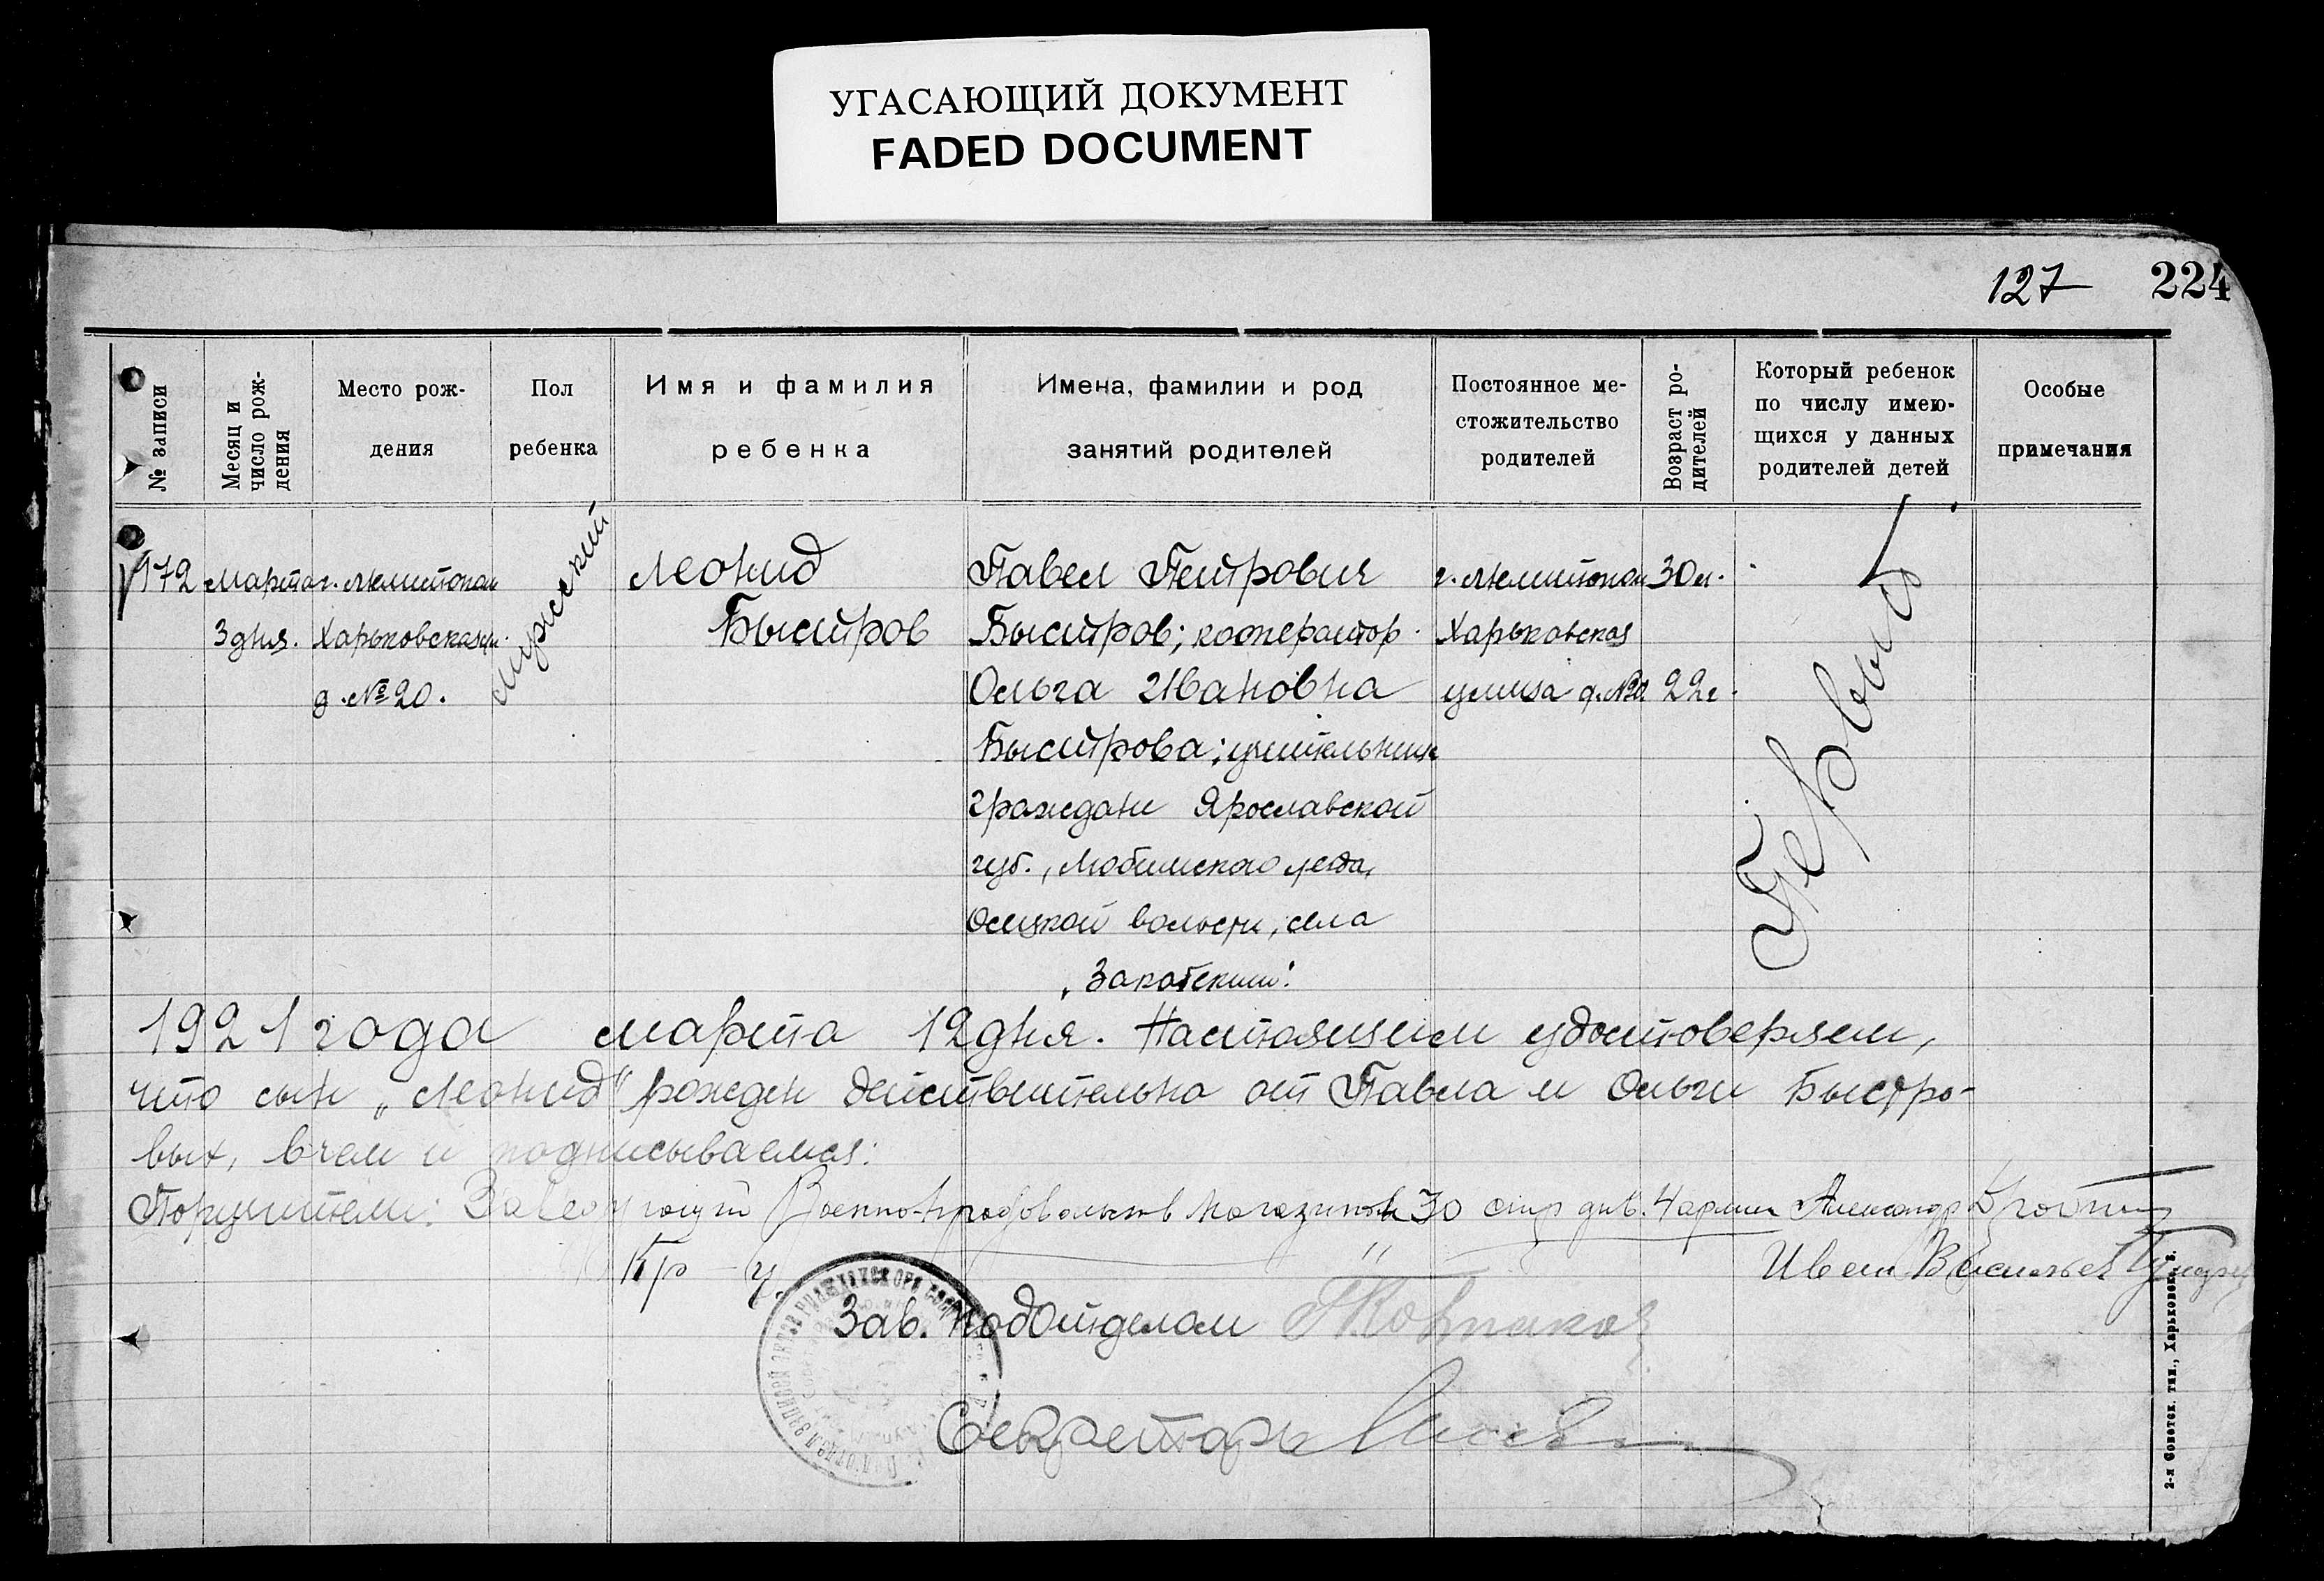 УГАСАЮЩИЙ ДОКУМЕНТ
FADED DOCUMENT
127 224
№ записи
Месяц и число рождения
Место рож-
дения
Пол
ребенка
Имя и фамилия
ребенка
Имена, фамилии и род
занятий родителей
Постоянное ме-
стожительство
родителей
Возраст ро-
дителей
Который ребенок
по числу имею-
щихся у данных
родителей детей
Особые
примечания
172
Марта
3 дня.
г. Мелитополь
Харьковская ул.
д. № 20.
Мужской
Леонид
Быстров
Павел Петрович
Быстров; кооператор
Ольга Ивановна
Быстрова; учительница
граждане Ярославской
губ., Любимского уезда,
Осецкой волости, села
г. Мелитополь
Харьковская
улица д. №20.
30 л.
22 г.
Первый
1921 года марта 12 дня. Настоящим удостоверяем,
что сын „Леонид" рожден действительно от Павла и Ольги Быстро-
вых, в чем и подписываемся:
Поручители: Заведующий Военно-продовольств магазином 30 стр див. 4 армии Александр
Иван Васильев
Зав. Подотделом
Секретарь
2-я Советск. тип., Харьковск. у.